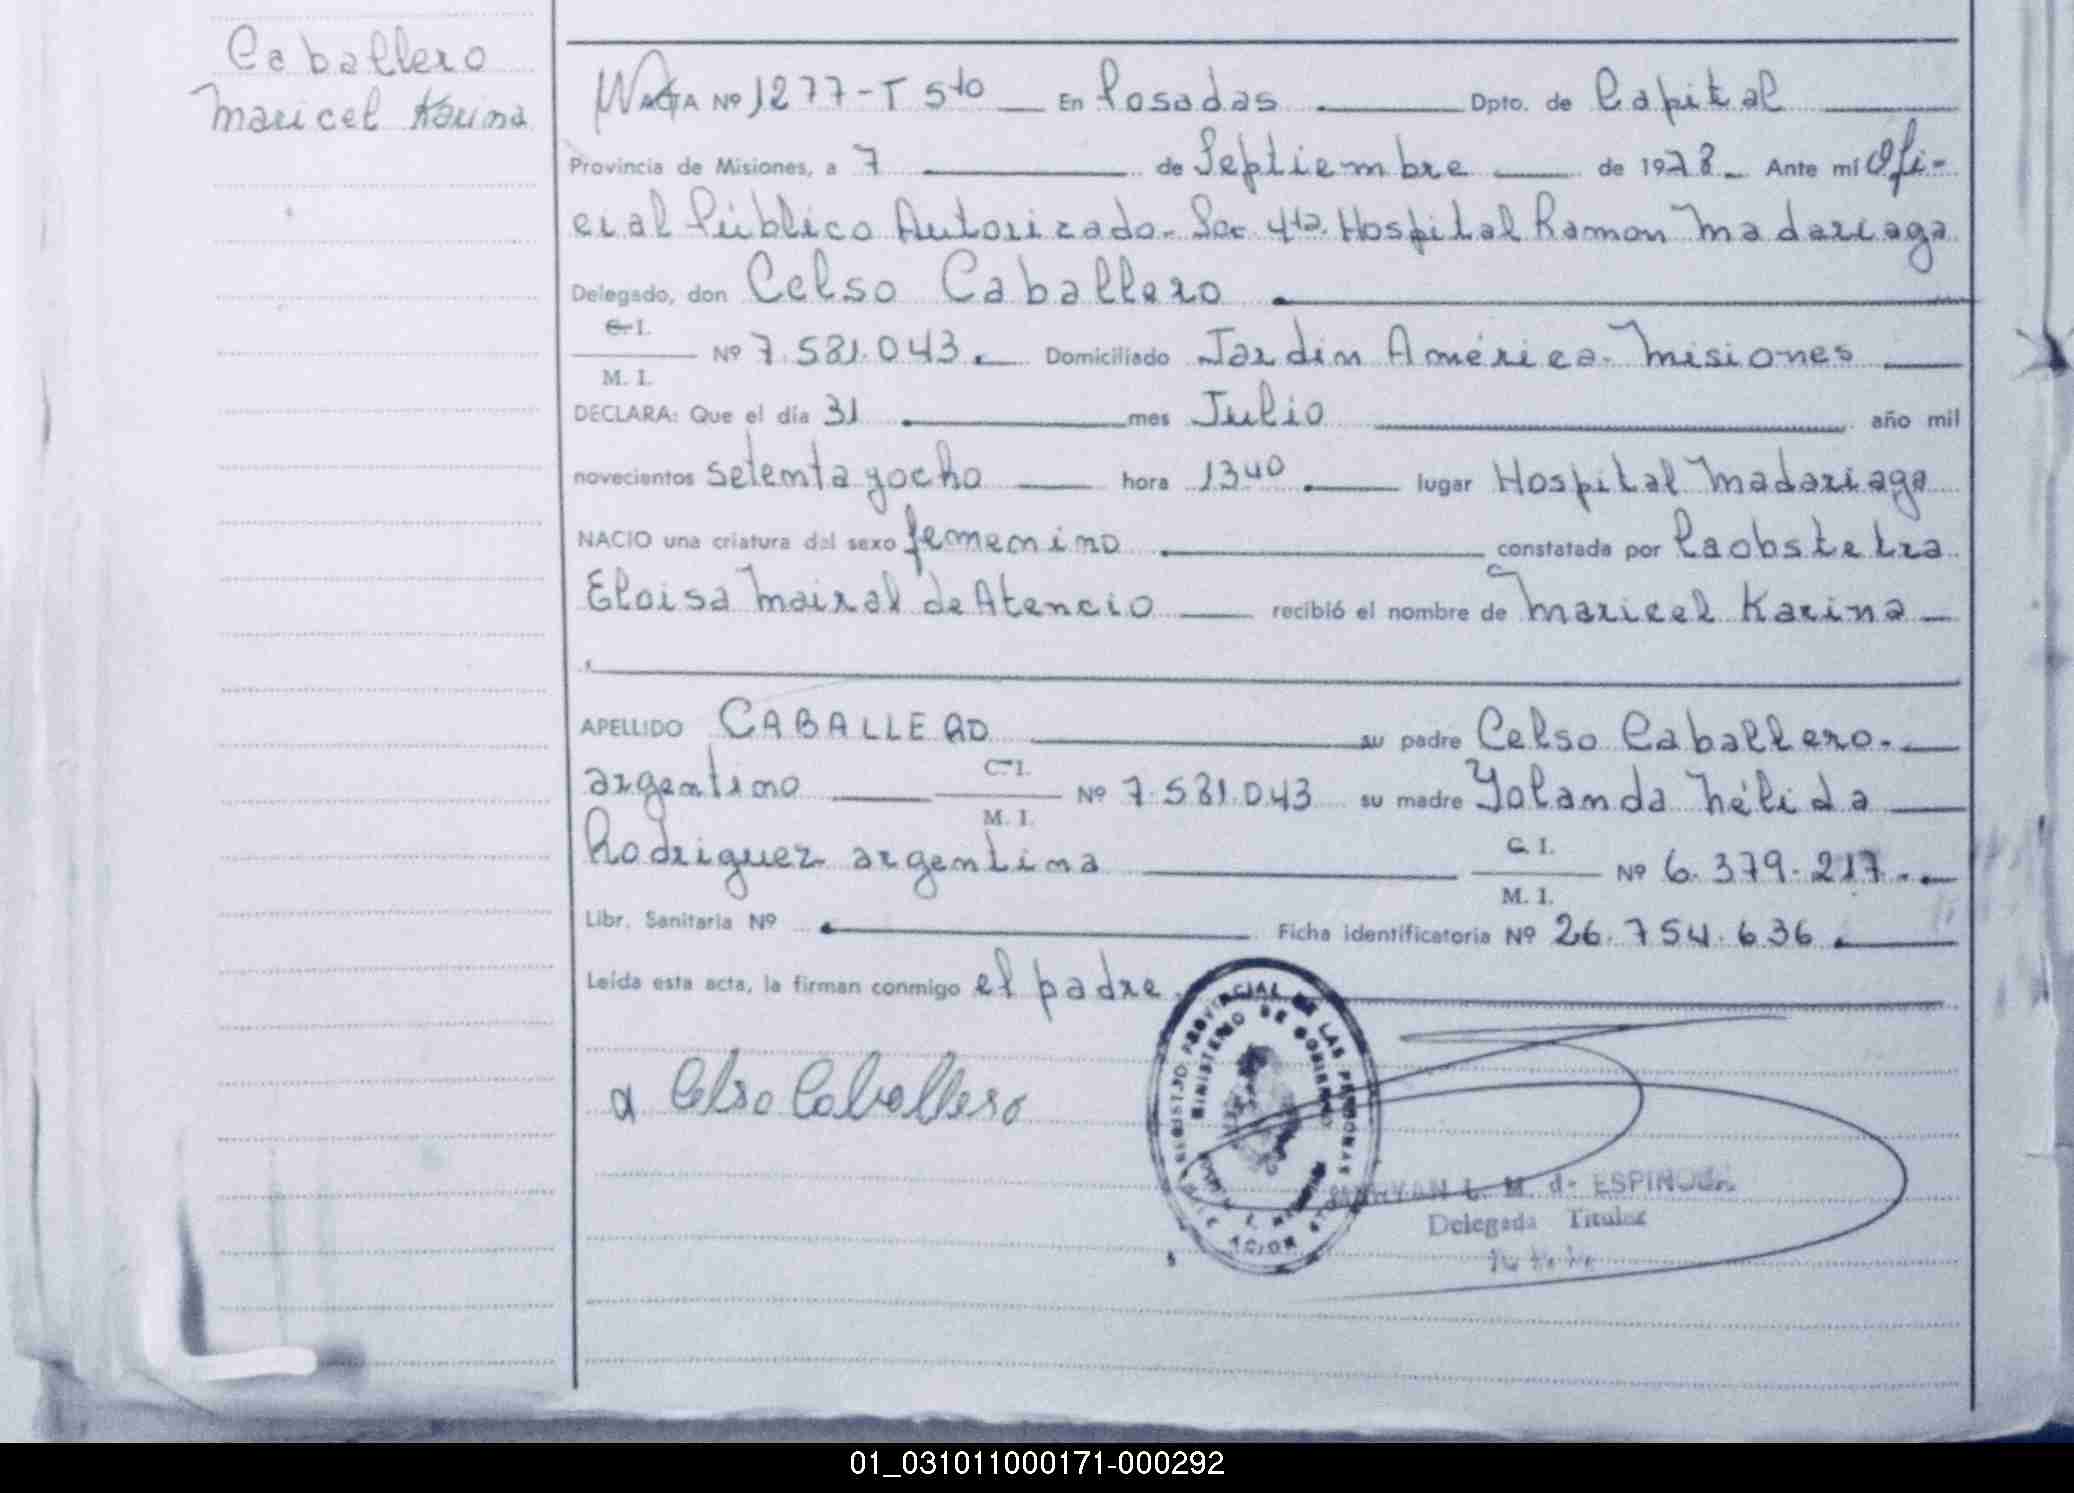 Caballero
Maricel Karina
ACTA Nº 1277-T 5to En Posadas Dpto. de Capital
Provincia de Misiones, a 7 de Septiembre de 1978 Ante mí Ofi-
cial Público Autorizado. Sec 4ta. Hospital Ramon Madariaga
Delegado, don Celso Caballero
C. I.
Nº 7.581.043. Domiciliado Jardin América. Misiones
M. I.
DECLARA: Que el día 31 mes Julio año mil
novecientos setenta y ocho hora 1340 lugar Hospital Madariaga
NACIO una criatura del sexo femenino constatada por la obstetra
Eloisa Mairal de Atencio recibió el nombre de Maricel Karina
APELLIDO CABALLERO su padre Celso Caballero.
argentino C. I. Nº 7.581.043 su madre Yolanda Nélida
M. I.
Rodriguez argentina C. I. Nº 6.379.217.
M. I.
Libr. Sanitaria Nº Ficha identificatoria Nº 26.754.636.
Leída esta acta, la firman conmigo el padre
Celso Caballero
REGISTRO PROVINCIAL DE LAS PERSONAS
MINISTERIO DE GOBIERNO
L. M. de ESPINOSA
Delegada Titular
01_031011000171-000292